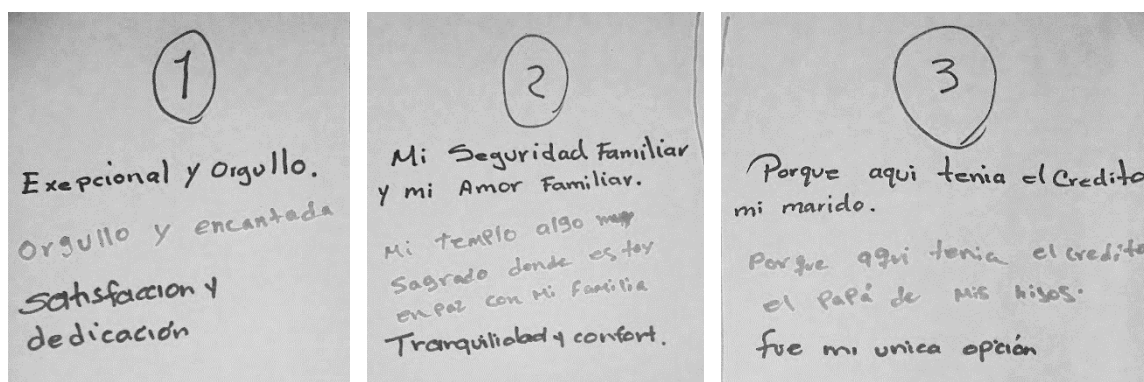 1
Exepcional y Orgullo.
Orgullo y encantada
Satisfaccion y
dedicación
2
Mi Seguridad Familiar
y mi Amor Familiar.
Mi templo algo
Sagrado donde estoy
en paz con mi Familia
Tranquilidad y confort.
3
Porque aqui tenia el Credito
mi marido.
Porque aqui tenia el credito
el Papá de mis hijos.
fue mi unica opción